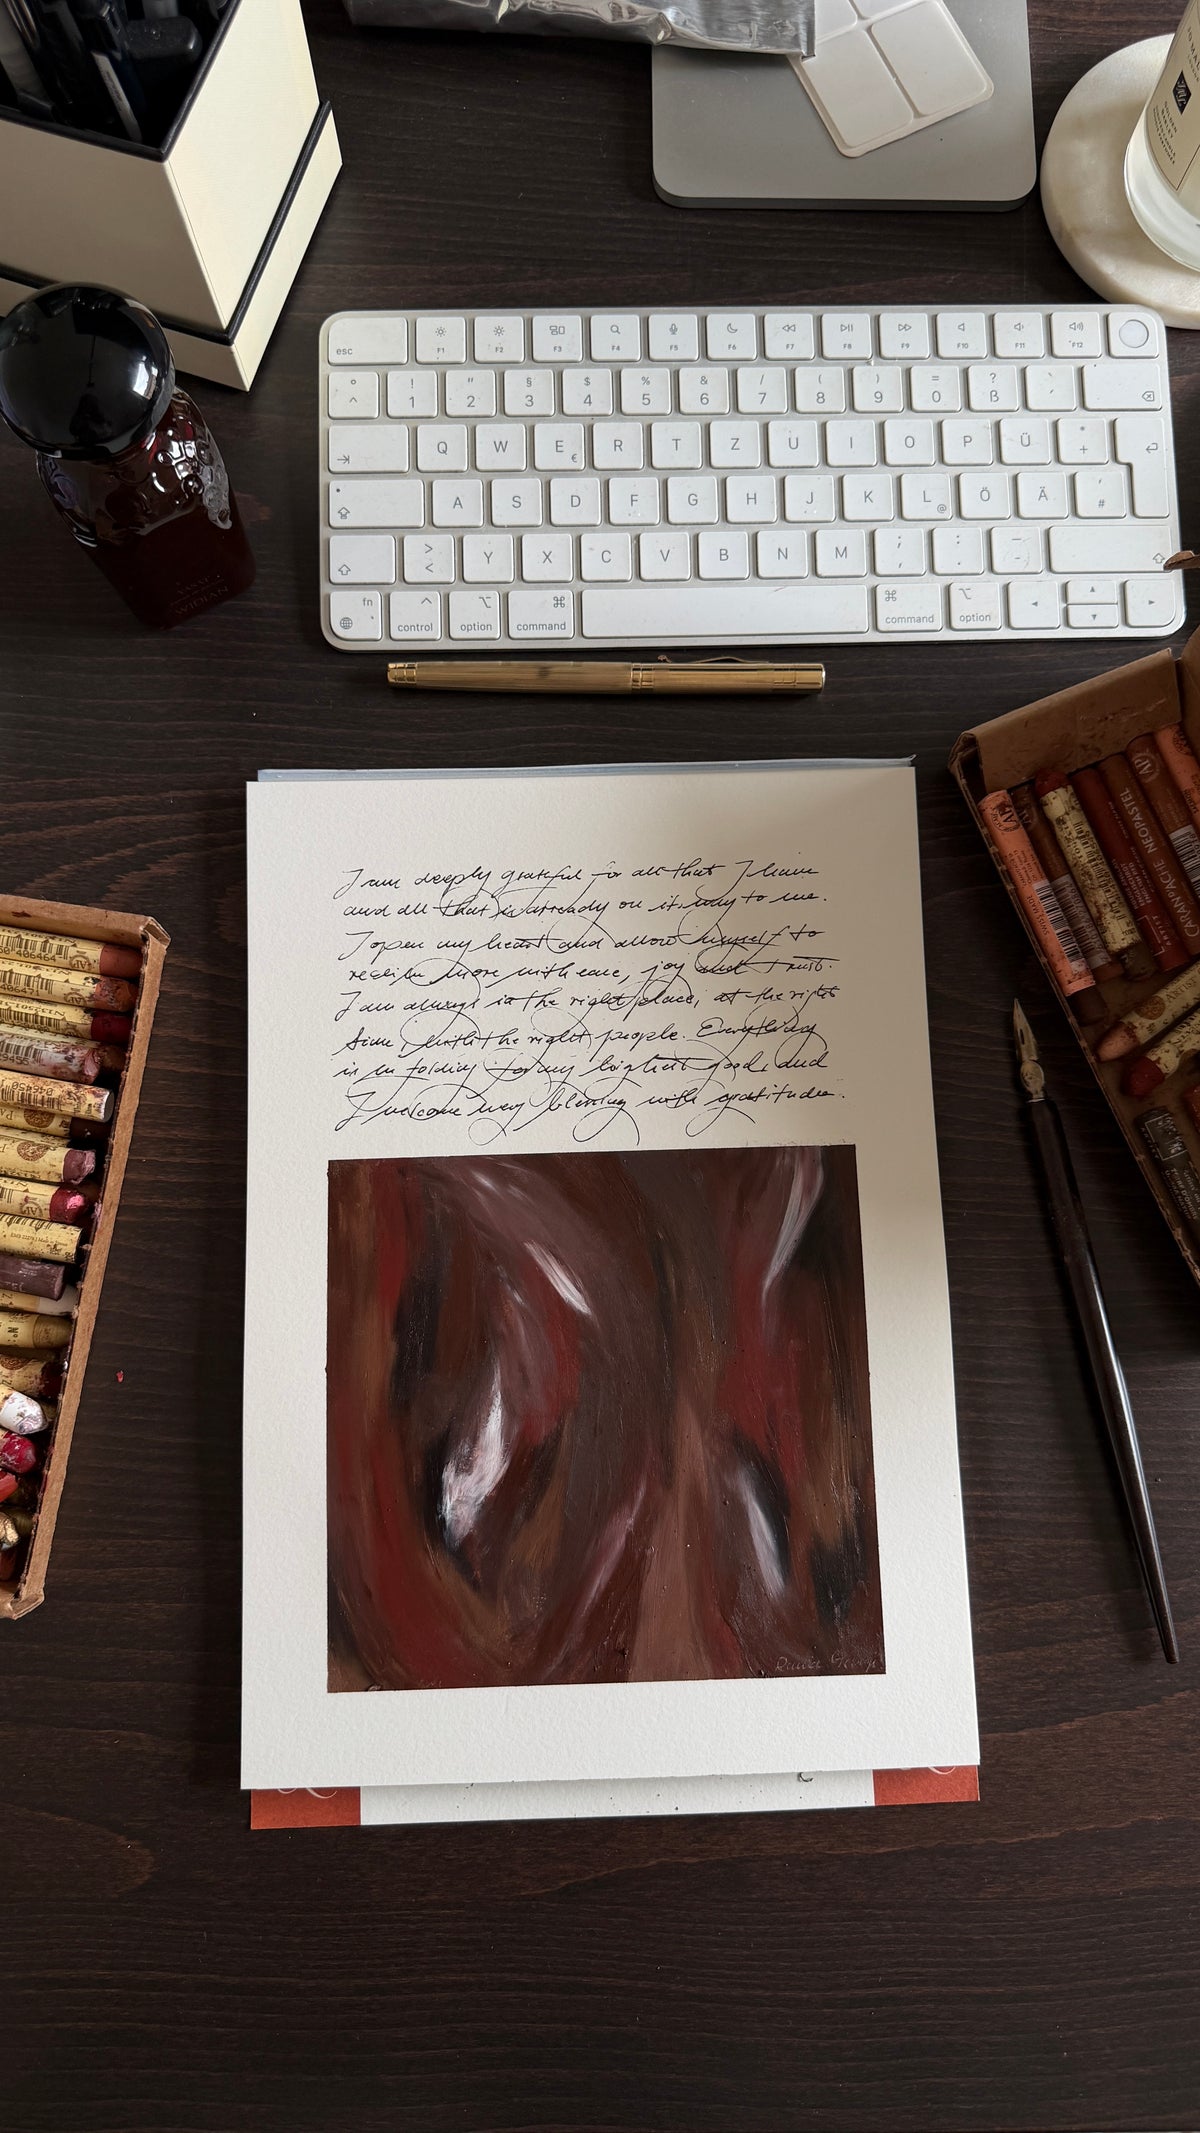 esc F1 F2 F3 F4 F5 F6 F7 F8 F9 F10 F11 F12
° ! " § $ % & / ( ) = ? `
^ 1 2 3 4 5 6 7 8 9 0 ß ´
Q W E € R T Z U I O P Ü * +
A S D F G H J K L @ Ö Ä ' #
> < Y X C V B N M ; , : . _ -
fn control option command command option
WIDIAN
I am deeply grateful for all that I have
and all that is already on its way to me.
I open my heart and allow myself to
receive more with ease, joy and trust.
I am always in the right place, at the right
time, with the right people. Everything
is unfolding for my highest good, and
I welcome every blessing with gratitude.
406464
406471
CARAN D'ACHE NEOPASTEL
AP